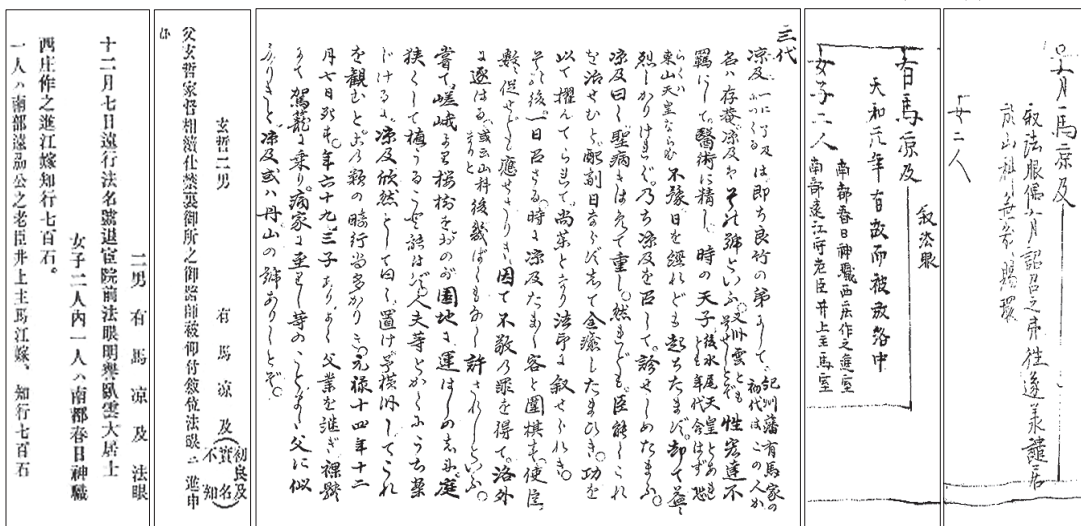 有馬凉及
叙法眼偶有詔召之弗往遂
居
於山科無幾賜環
女二人
叙法眼
有馬凉及
天和元年有故而被放洛中
女子二人
南都春日神職西庄作之進室
南部遠江守老臣井上主馬室
三代
凉及一に了及は即ち良竹の弟にして、紀州藩有馬家の初代はこの人か
名ハ存菴凉及ハその號といふ。又臥雲とも號せしとぞ 性宏達不
羈にして、醫術に精し、時の天子後水尾天皇とあれども年代合はず恐
らくハ東山天皇ならむ 不豫日を經れども起ちたまはず。却て益々
烈しかりければ、乃ち凉及を召して。診せしめたまふ。
凉及曰く聖病まはえて重し。然れども。臣能くこれ
を治せむと。配劑日ならずして全癒したまひき。功を
以て擢んでられて。尚藥となり法印に叙せられき。
その後。一日召さる。時に凉及たまたま客と圍棋す。使臣
數促せども應せざりき。因て不敬の罪を得て。洛外
に逐はる。或云山科 後幾ばくもなく許されしといふ。
嘗て嵯峨より櫻樹をおのが園地に運ばしめしに。庭
狹くして植うること能はず。人夫等とかくふうち案
じけるに。凉及欣然として曰く。置け予横臥してこれ
を觀むと。この類の畸行尚多かりき。元祿十四年十二
月七日歿す。年六十九。三子ありよく父業を繼ぎ。裸體
にて駕籠に乘り。病家に至りし等のことまで父に似
たりきと。凉及或ハ丹山の號ありしとぞ。
玄哲二男 有馬凉及(初良及 實名不知)
父玄哲家督相續仕禁裏御所之御醫師被仰付敍位法眼ニ進申
候
二男 有馬凉及法眼
十二月七日遠行法名號退宦院前法眼明輿臥雲大居士
女子二人內一人ハ南都春日神職
西庄作之進江嫁知行七百石。
一人ハ南部遠江公之老臣井上主馬江嫁、知行七百石